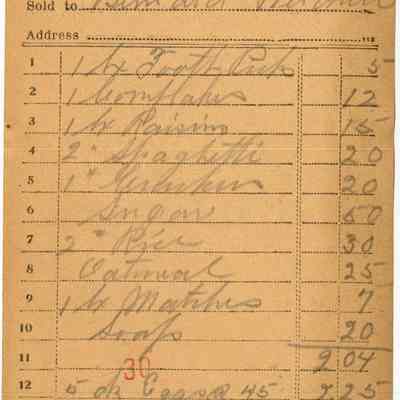 Sold to
Address
1 1 bx Tooth Pick 5
2 1 Cornflakes 12
3 1 bx Raisins 15
4 2 " Spaghetti 20
5 1 " 20
6 Sugar 50
7 2 " Rice 30
8 Oatmeal 25
9 1 bx Matches 7
10 Soap 20
11 2 04
30
12 5 dz Eggs @ 45 2.25